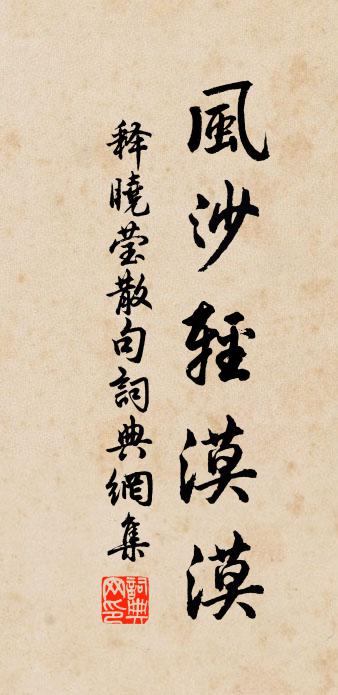 風沙輕漠漠
释曉莹散句詞典網集
詞典网印